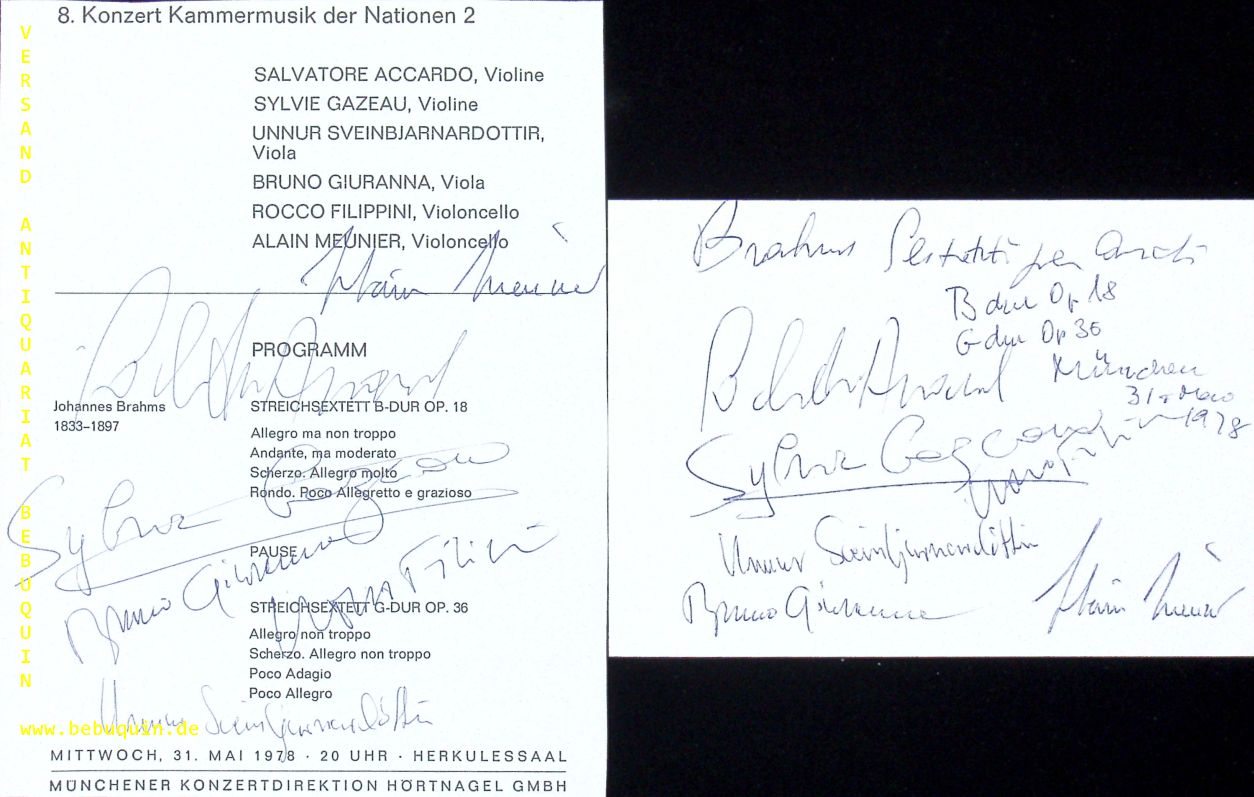 8. Konzert Kammermusik der Nationen 2
SALVATORE ACCARDO, Violine
SYLVIE GAZEAU, Violine
UNNUR SVEINBJARNARDOTTIR,
Viola
BRUNO GIURANNA, Viola
ROCCO FILIPPINI, Violoncello
ALAIN MEUNIER, Violoncello
Alain Meunier
PROGRAMM
Johannes Brahms
1833–1897
STREICHSEXTETT B-DUR OP. 18
Allegro ma non troppo
Andante, ma moderato
Scherzo. Allegro molto
Rondo. Poco Allegretto e grazioso
Sylvie Gazeau
PAUSE
Bruno Giuranna
STREICHSEXTETT G-DUR OP. 36
Allegro non troppo
Scherzo. Allegro non troppo
Poco Adagio
Poco Allegro
Unnur Sveinbjarnardóttir
MITTWOCH, 31. MAI 1978 · 20 UHR · HERKULESSAAL
MÜNCHENER KONZERTDIREKTION HÖRTNAGEL GMBH
VERSAND ANTIQUARIAT BEBUQUIN
www.bebuquin.de
Brahms Sestetti per archi
B dur Op 18
G dur Op 36
München
31 1978
Sylvie Gazeau
Unnur Sveinbjarnardóttir
Bruno Giuranna
Alain Meunier